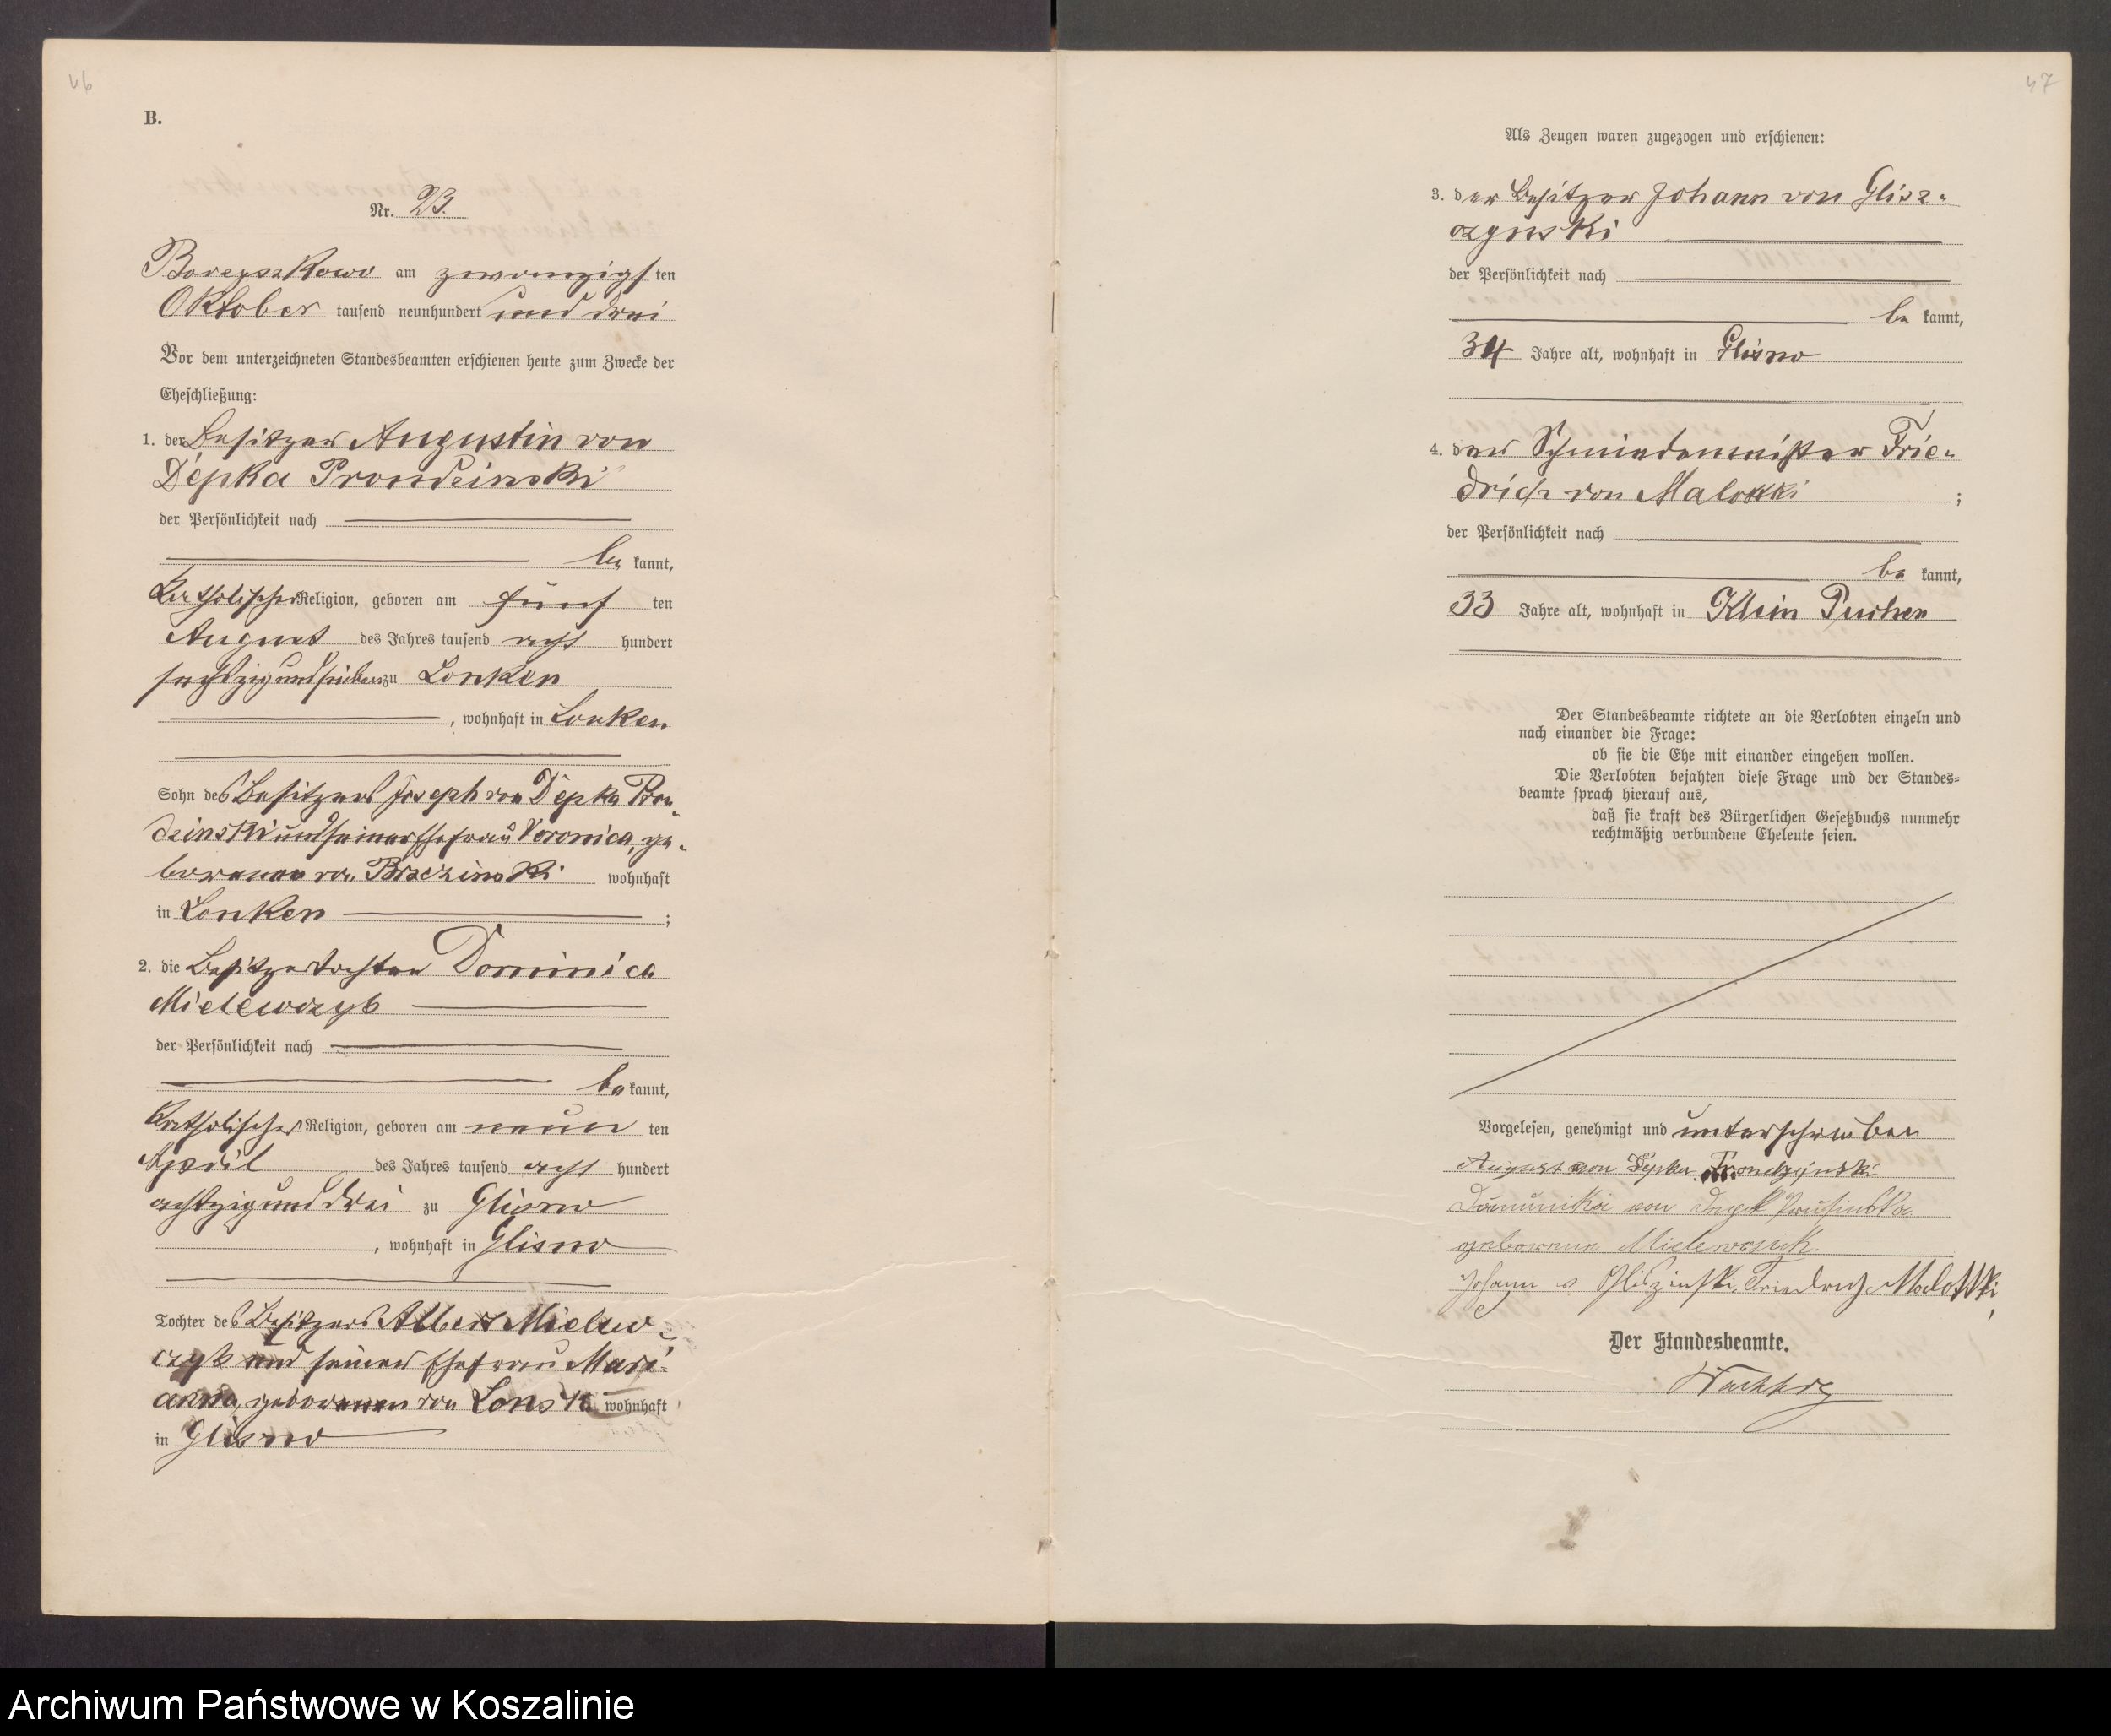 46
B.
Nr. 23.
Boregszkowo am zwanzigsten
Oktober tausend neunhundert und drei
Vor dem unterzeichneten Standesbeamten erschienen heute zum Zwecke der
Eheschließung:
1. der Besitzer Augustin von
Depka Prondzinski
der Persönlichkeit nach
be kannt,
katholischer Religion, geboren am fünf ten
August des Jahres tausend acht hundert
sechszig und sieben zu Lonken
, wohnhaft in Lonken
Sohn des Besitzers Joseph von Depka Pron-
dzinski und seiner Ehefrau Veronica, ge-
borenen von wohnhaft
in Lonken ;
2. die Besitzertochter Dominica
Mielewczyk
der Persönlichkeit nach
be kannt,
katholischer Religion, geboren am neun ten
April des Jahres tausend acht hundert
achtzig und drei zu Glisno
, wohnhaft in Glisno
Tochter des Besitzers Albert Mielew-
czyk und seiner Ehefrau Mari-
anna, geborenen von Lonski wohnhaft
in Glisno
47
Als Zeugen waren zugezogen und erschienen:
3. der Besitzer Johann von Glisz-
czynski
der Persönlichkeit nach
be kannt,
34 Jahre alt, wohnhaft in Glisno
4. der Schmiedemeister Frie-
drich von Malottki ;
der Persönlichkeit nach
be kannt,
33 Jahre alt, wohnhaft in Klein
Der Standesbeamte richtete an die Verlobten einzeln und
nach einander die Frage:
ob sie die Ehe mit einander eingehen wollen.
Die Verlobten bejahten diese Frage und der Standes-
beamte sprach hierauf aus,
daß sie kraft des Bürgerlichen Gesetzbuchs nunmehr
rechtmäßig verbundene Eheleute seien.
Vorgelesen, genehmigt und unterschrieben
August von Depka Prondzynski
von
geborene Mielewczik.
Johann v Gliszinski, Friedrich Malottki
Der Standesbeamte.
Archiwum Państwowe w Koszalinie